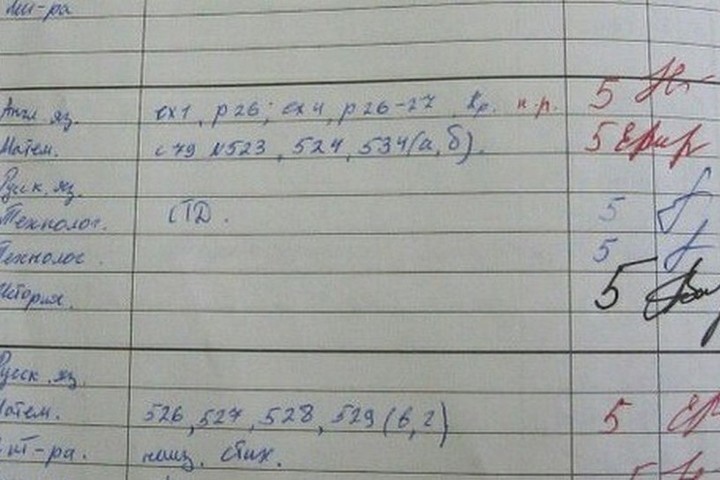 Лит-ра
Англ. яз. ex 1, p 26; ex 4, p 26-27 Кр. н.р. 5
Матем. с 79 №523, 524, 534(а, б). 5
Русск. яз.
Технолог. СТД. 5
Технолог. 5
История. 5
Русск. яз.
Матем. 526, 527, 528, 529 (в, г) 5
Лит-ра. наиз. стих. 5